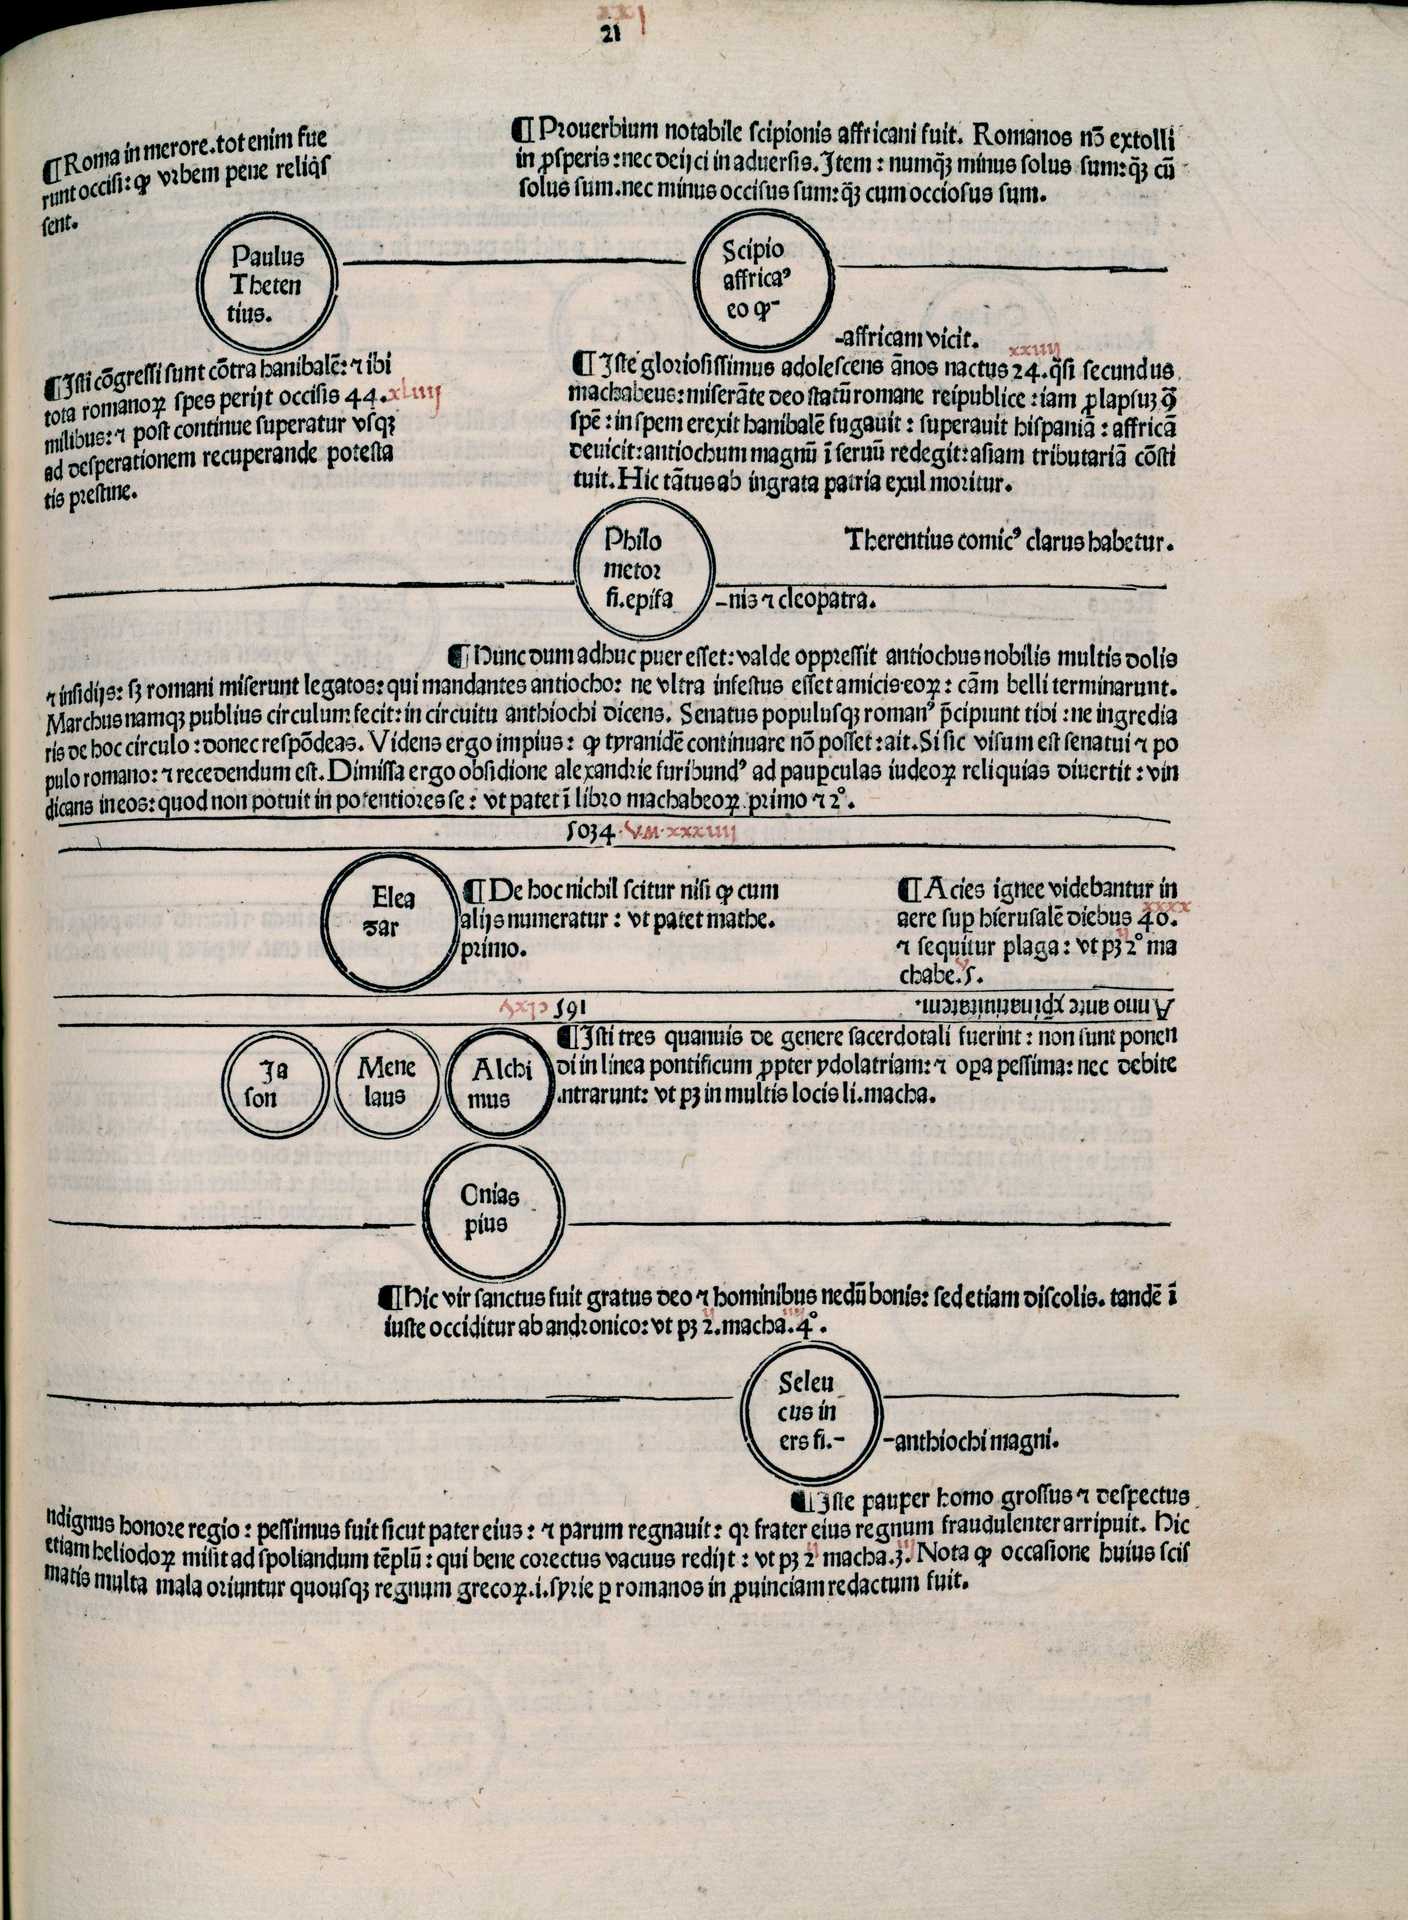 xxj
21
¶ Roma in merore. tot enim fue
runt occisi: ꝙ vrbem pene reliq̃s
sent.
¶ Prouerbium notabile scipionis affricani fuit. Romanos nō extolli
in ꝓsperis: nec deijci in aduersis. Item: numqꝫ minus solus sum: qꝫ cū
solus sum. nec minus occisus sum: qꝫ cum occiosus sum.
Paulus
Theten
tius.
Scipio
affricaꝰ
eo ꝙ-
-affricam vicit.
¶ Isti cōgressi sunt cōtra hanibalē: ⁊ ibi
tota romanoꝝ spes perijt occisis 44. xliiij
milibus: ⁊ post continue superatur vsqꝫ
ad desperationem recuperande potesta
tis prestine.
xxiiij
¶ Iste gloriosissimus adolescens ānos nactus 24. q̃si secundus
machabeus: miserāte deo statū romane reipublice: iam ꝓlapsuꝫ ꝙ̄
spē: in spem erexit hanibalē fugauit: superauit hispaniā: affricā
deuicit: antiochum magnū ī seruū redegit: asiam tributariā cōsti
tuit. Hic tātus ab ingrata patria exul moritur.
Philo
metor
fi. epifa
-nis ⁊ cleopatra.
Therentius comicꝰ clarus habetur.
¶ Hunc dum adhuc puer esset: valde oppressit antiochus nobilis multis dolis
⁊ insidijs: sꝫ romani miserunt legatos: qui mandantes antiocho: ne vltra infestus esset amicis eoꝝ: cām belli terminarunt.
Marchus namqꝫ publius circulum fecit: in circuitu anthiochi dicens. Senatus populusqꝫ romanꝰ p̄cipiunt tibi: ne ingredia
ris de hoc circulo: donec respōdeas. Videns ergo impius: ꝙ tyranidē continuare nō posset: ait. Si sic visum est senatui ⁊ po
pulo romano: ⁊ recedendum est. Dimissa ergo obsidione alexandrie furibundꝰ ad pauꝑculas iudeoꝝ reliquias diuertit: vin
dicans in eos: quod non potuit in potentiores se: vt patet ī libro machabeoꝝ primo ⁊ 2°.
5034 · VM · xxxiiij
Elea
zar
¶ De hoc nichil scitur nisi ꝙ cum
alijs numeratur: vt patet mathe.
primo.
¶ Acies ignee videbantur in
xxxx
aere suꝑ hierusalē diebus 40.
⁊ sequitur plaga: vt pꝫ 2° ma
chabe. 5.
591
Anno ante xp̄i natiuitatem.
Ja
son
Mene
laus
Alchi
mus
¶ Isti tres quanuis de genere sacerdotali fuerint: non sunt ponen
di in linea pontificum ꝓpter ydolatriam: ⁊ oꝑa pessima: nec debite
ntrarunt: vt pꝫ in multis locis li. macha.
Onias
pius
¶ Hic vir sanctus fuit gratus deo ⁊ hominibus nedū bonis: sed etiam discolis. tandē ī
iuste occiditur ab andronico: vt pꝫ 2. macha. 4°.
Seleu
cus in
ers fi.-
-anthiochi magni.
¶ Iste pauper homo grossus ⁊ despectus
ndignus honore regio: pessimus fuit sicut pater eius: ⁊ parum regnauit: qꝛ frater eius regnum fraudulenter arripuit. Hic
etiam heliodoꝝ misit ad spoliandum tēplū: qui bene corectus vacuus redijt: vt pꝫ 2 macha. 3. Nota ꝙ occasione huius scis
matis multa mala oriuntur quousqꝫ regnum grecoꝝ .i. syrie ꝑ romanos in ꝓuinciam redactum fuit.